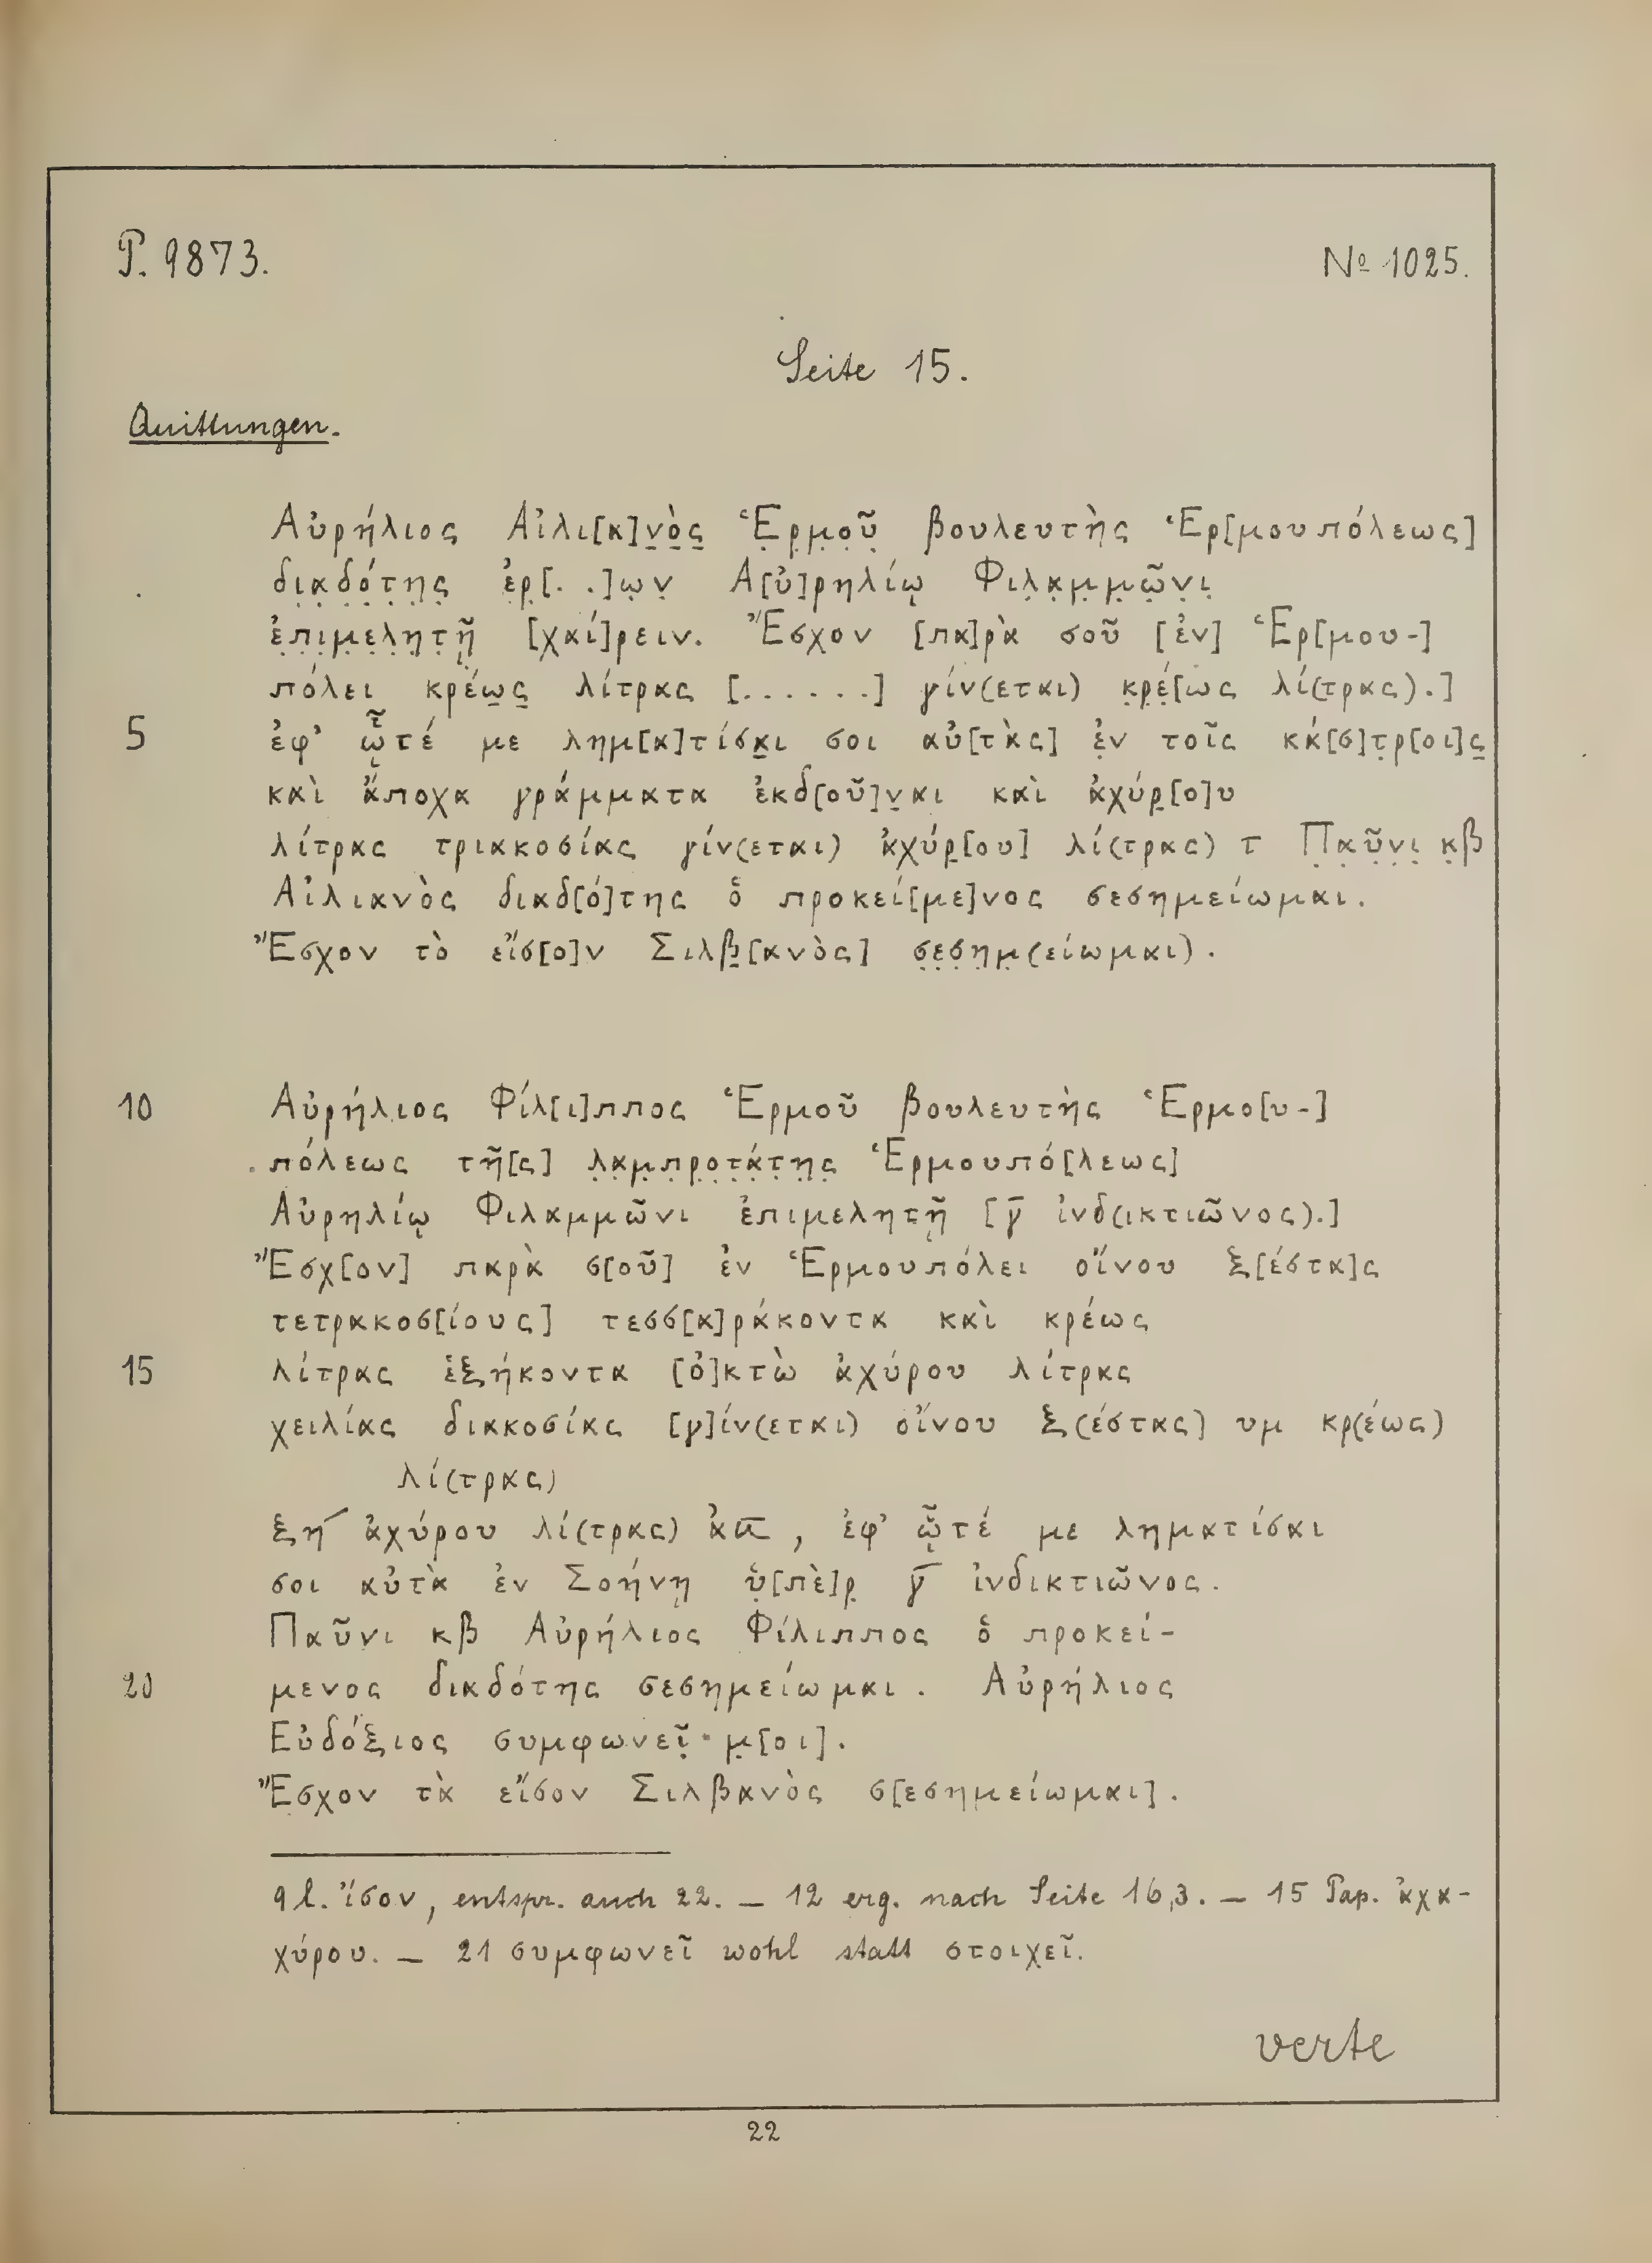 P. 9873.
№ 1025.
Seite 15.
Quittungen.
Αὐρήλιος Αἰλι[α]ν̣ὸ̣ς̣ Ἑ̣ρ̣μ̣ο̣ῦ̣ βουλευτὴς Ἑρ[μουπόλεως]
δ̣ι̣α̣δ̣ό̣τ̣η̣ς̣ ἐ̣ρ̣[. .]ω̣ν̣ Α[ὐ]ρηλίῳ Φιλ̣α̣μ̣μ̣ῶ̣ν̣ι̣
ἐ̣π̣ι̣μ̣ε̣λ̣η̣τ̣ῇ̣ [χαί]ρειν. Ἔσχον [πα]ρὰ σοῦ [ἐν] Ἑρ[μου-]
πόλει κρέω̣ς̣ λίτρας [. . . . . .] γίν(εται) κ̣ρ̣έ̣[ως λί(τρας).]
5 ἐφ' ᾧτέ με λημ[α]τίσα̣ι σοι αὐ[τὰς] ἐ̣ν τοῖς κά[σ]τ̣ρ[οι]ς̣
καὶ ἄποχα γράμματα ἐκδ[οῦ]ν̣αι καὶ ἀχύρ̣[ο]υ
λίτρας τριακοσίας γίν(εται) ἀχύρ̣[ου] λί(τρας) τ Π̣α̣ῦ̣ν̣ι̣ κ̣β
Αἰλιανὸς διαδ[ό]της ὁ προκεί[με]νος σεσημείωμαι.
Ἔσχον τὸ εἴσ[ο]ν Σιλβ̣[ανὸς] σ̣ε̣σ̣η̣μ̣(είωμαι).
10 Αὐρήλιος Φίλ[ι]ππος Ἑρμοῦ βουλευτὴς Ἑρμο[υ-]
πόλεως τῆ[ς] λ̣α̣μ̣π̣ρ̣ο̣τ̣ά̣τ̣η̣ς̣ Ἑρμουπό[λεως]
Αὐρηλίῳ Φιλαμμῶνι ἐπιμελητῇ [γ̅ ἰνδ(ικτιῶνος).]
Ἔσχ[ον] παρὰ σ[οῦ] ἐν Ἑρμουπόλει οἴνου ξ[έστα]ς
τετρακοσ[ίους] τεσσ[α]ράκοντα καὶ κρέως
15 λίτρας ἑξήκοντα [ὀ]κτὼ ἀχύρου λίτρας
χειλίας διακοσίας [γ]ίν(εται) οἴνου ξ(έστας] υμ κρ(έως)
λί(τρας)
ξη ἀχύρου λί(τρας) , ἐφ' ᾧτέ μεληματίσαι
σοι αὐτὰ ἐν Σοήνῃ ὑ̣[πὲ]ρ̣ γ̅ ἰνδικτιῶνος.
Παῦνι κβ Αὐρήλιος Φίλιππος ὁ προκεί-
20 μενος διαδότης σεσημείωμαι. Αὐρήλιος
Εὐδόξιος συμφωνεῖ̣ μ̣[οι].
Ἔσχον τὰ εἴσον Σιλβανὸς σ[εσημείωμαι].
9 l. ἴσον, entspr. auch 22. — 12 erg. nach Seite 16,3. — 15 Pap. ἀχα-
χύρου. — 21 συμφωνεῖ wohl statt στοιχεῖ.
verte
22